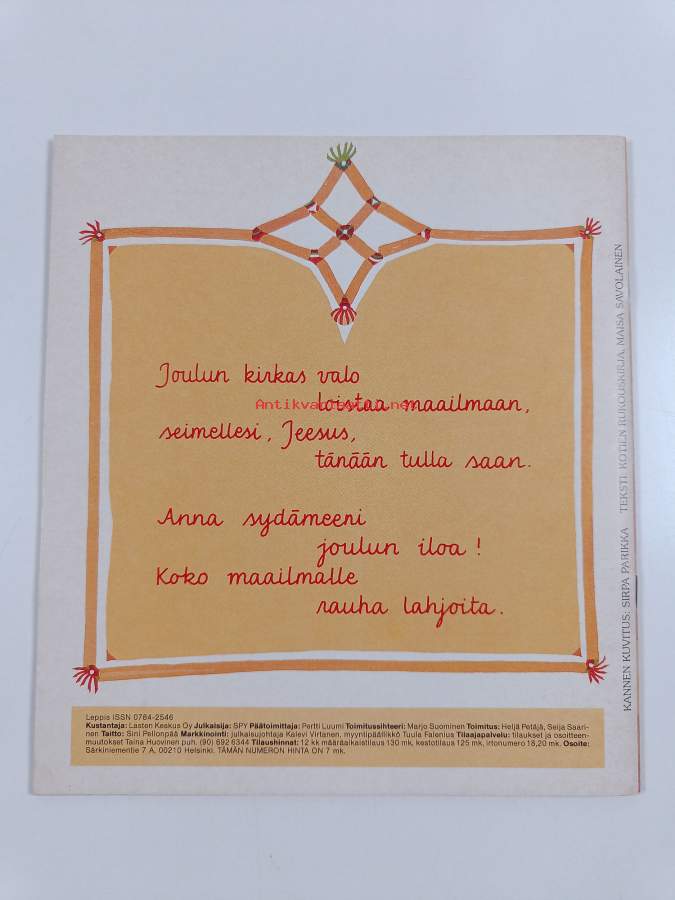 Joulun kirkas valo
loistaa maailmaan,
seimellesi, Jeesus,
tänään tulla saan.
Anna sydämeeni
joulun iloa!
Koko maailmalle
rauha lahjoita.
Antikvariaatti.net
KANNEN KUVITUS: SIRPA PARIKKA TEKSTI: KOTIEN RUKOUSKIRJA, MAISA SAVOLAINEN
Leppis ISSN 0784-2546
Kustantaja: Lasten Keskus Oy Julkaisija: SPY Päätoimittaja: Pertti Luumi Toimitussihteeri: Marjo Suominen Toimitus: Heljä Petäjä, Seija Saari-
nen Taitto: Sini Pellonpää Markkinointi: julkaisujohtaja Kalevi Virtanen, myyntipäällikkö Tuula Falenius Tilaajapalvelu: tilaukset ja osoitteen-
muutokset Taina Huovinen puh. (90) 692 6344 Tilaushinnat: 12 kk määräaikaistilaus 130 mk, kestotilaus 125 mk, irtonumero 18,20 mk. Osoite:
Särkiniementie 7 A, 00210 Helsinki. TÄMÄN NUMERON HINTA ON 7 mk.